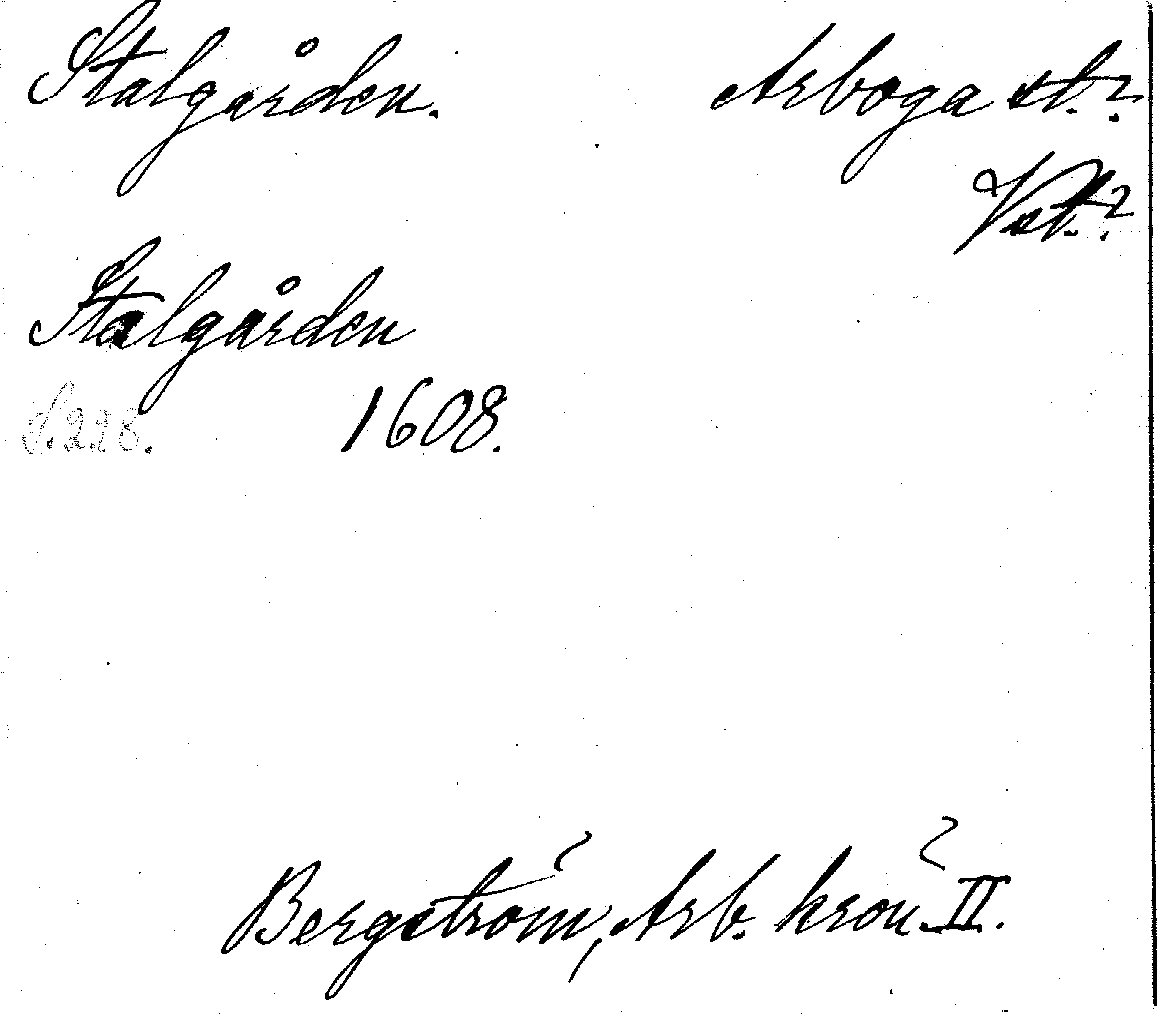 Stalgården. Arboga st.?
Vst.?
Stalgården
S. 228. 1608.
Bergström, Arb. krön. II.